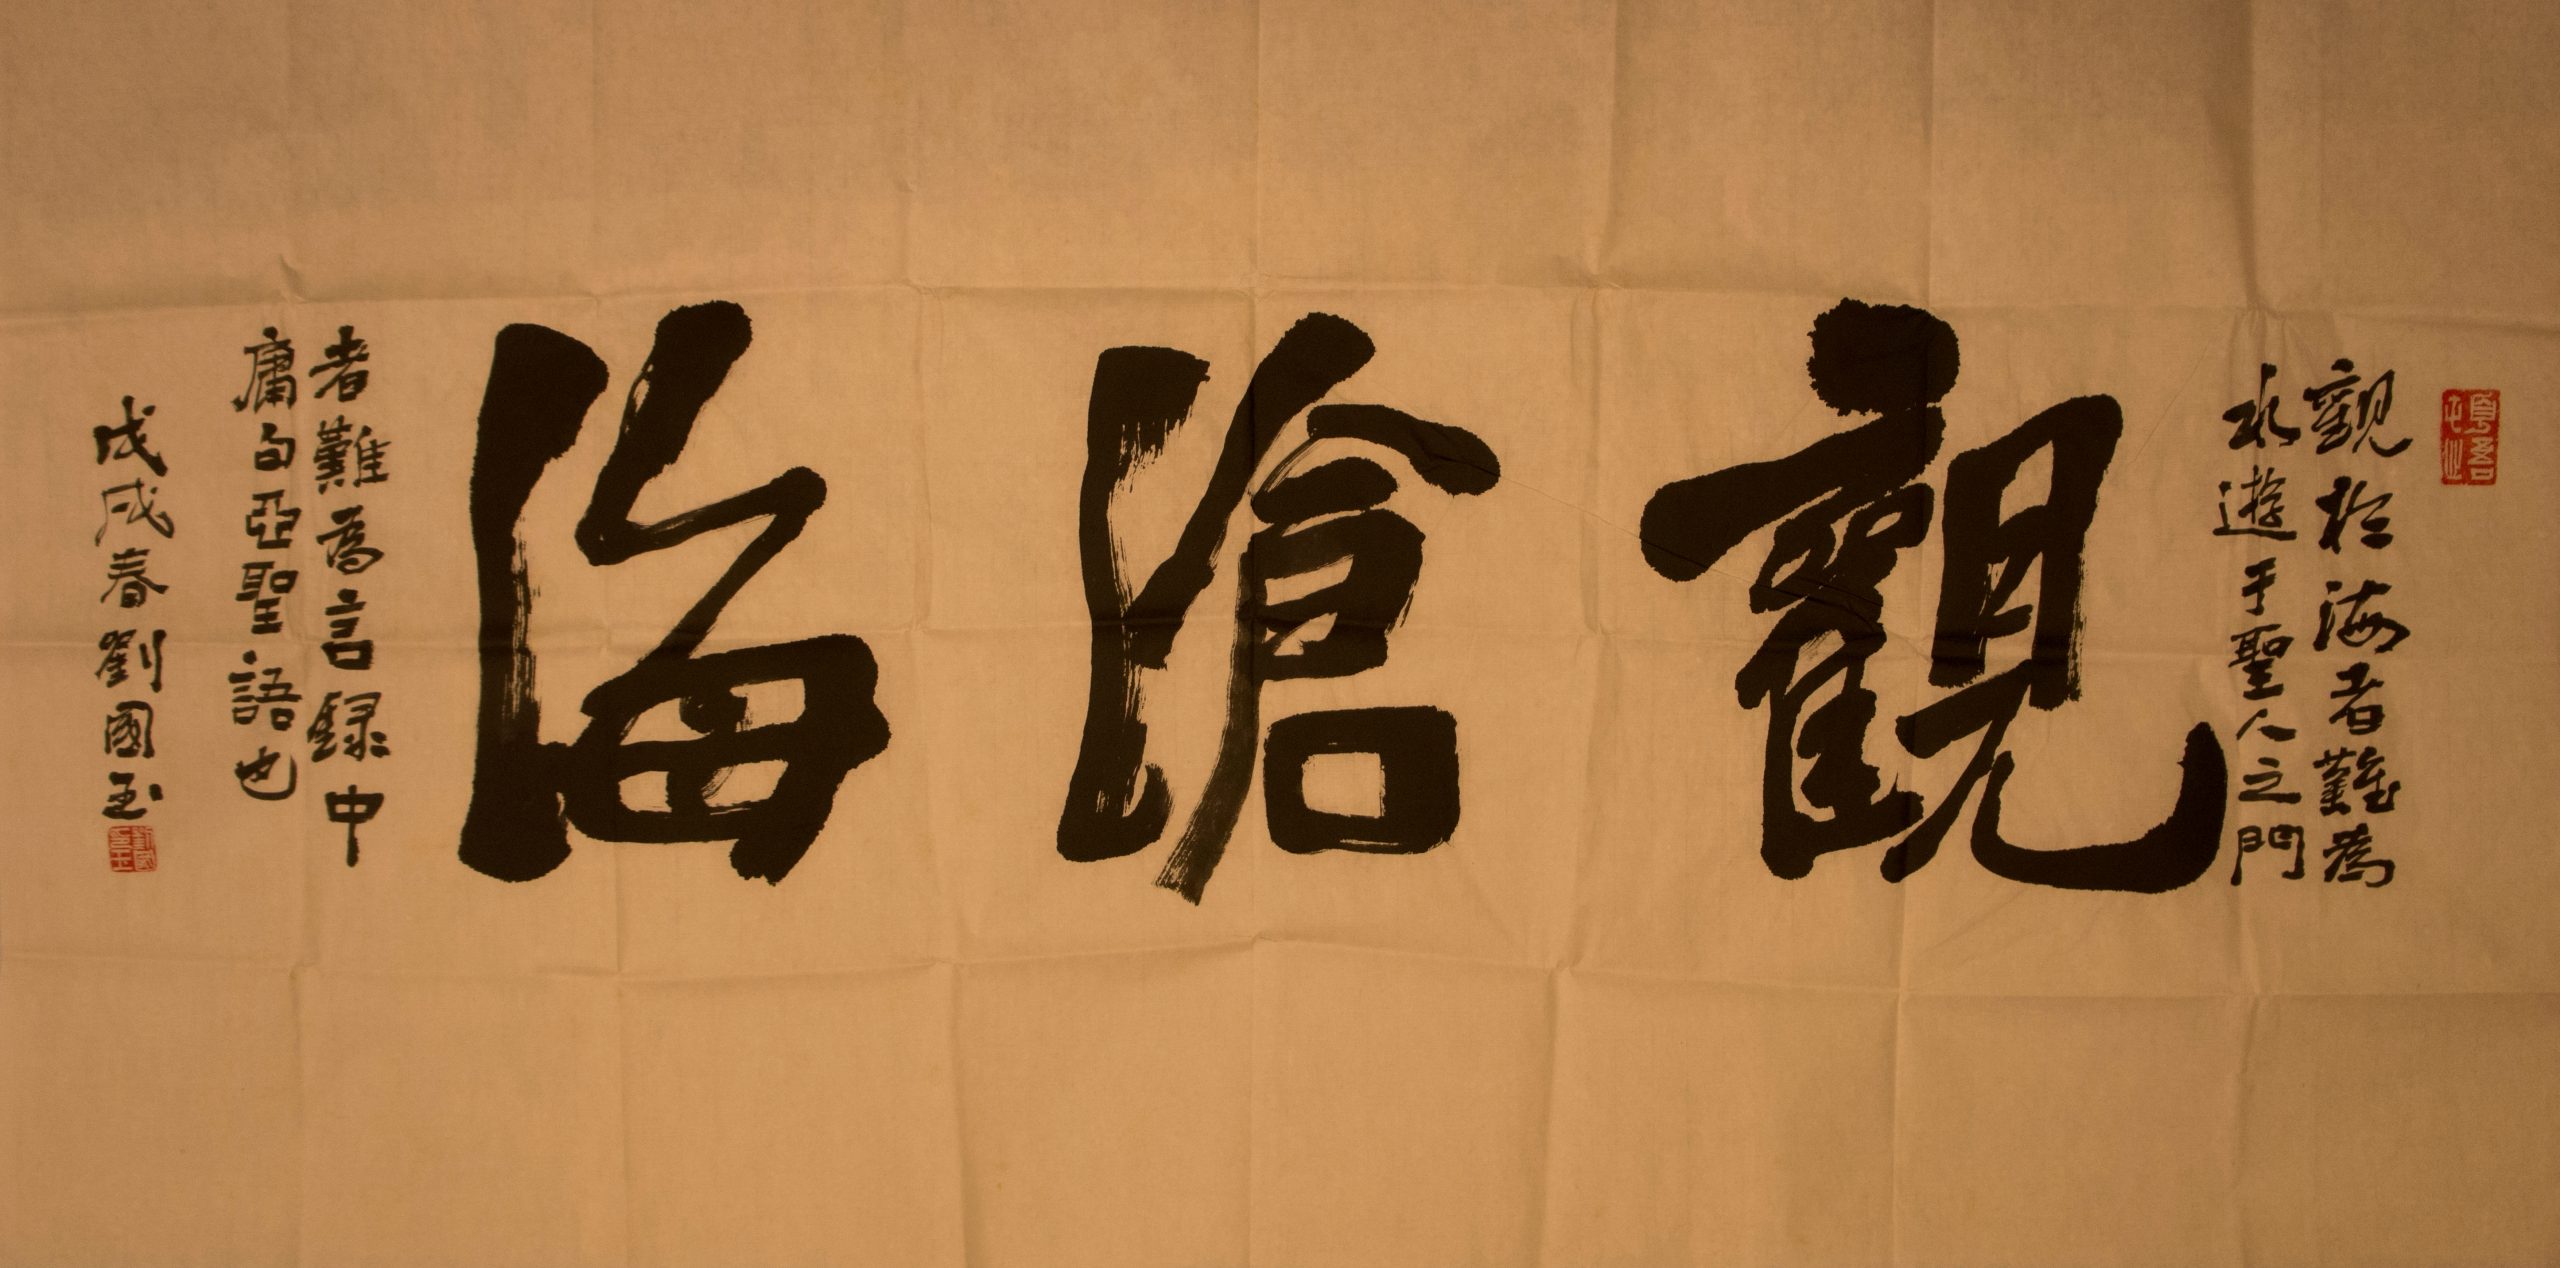 觀於海者難為
水遊于聖人之門
觀滄海
者難為言録中
庸句亞聖語也
戊戌春劉國玉
劉國玉印